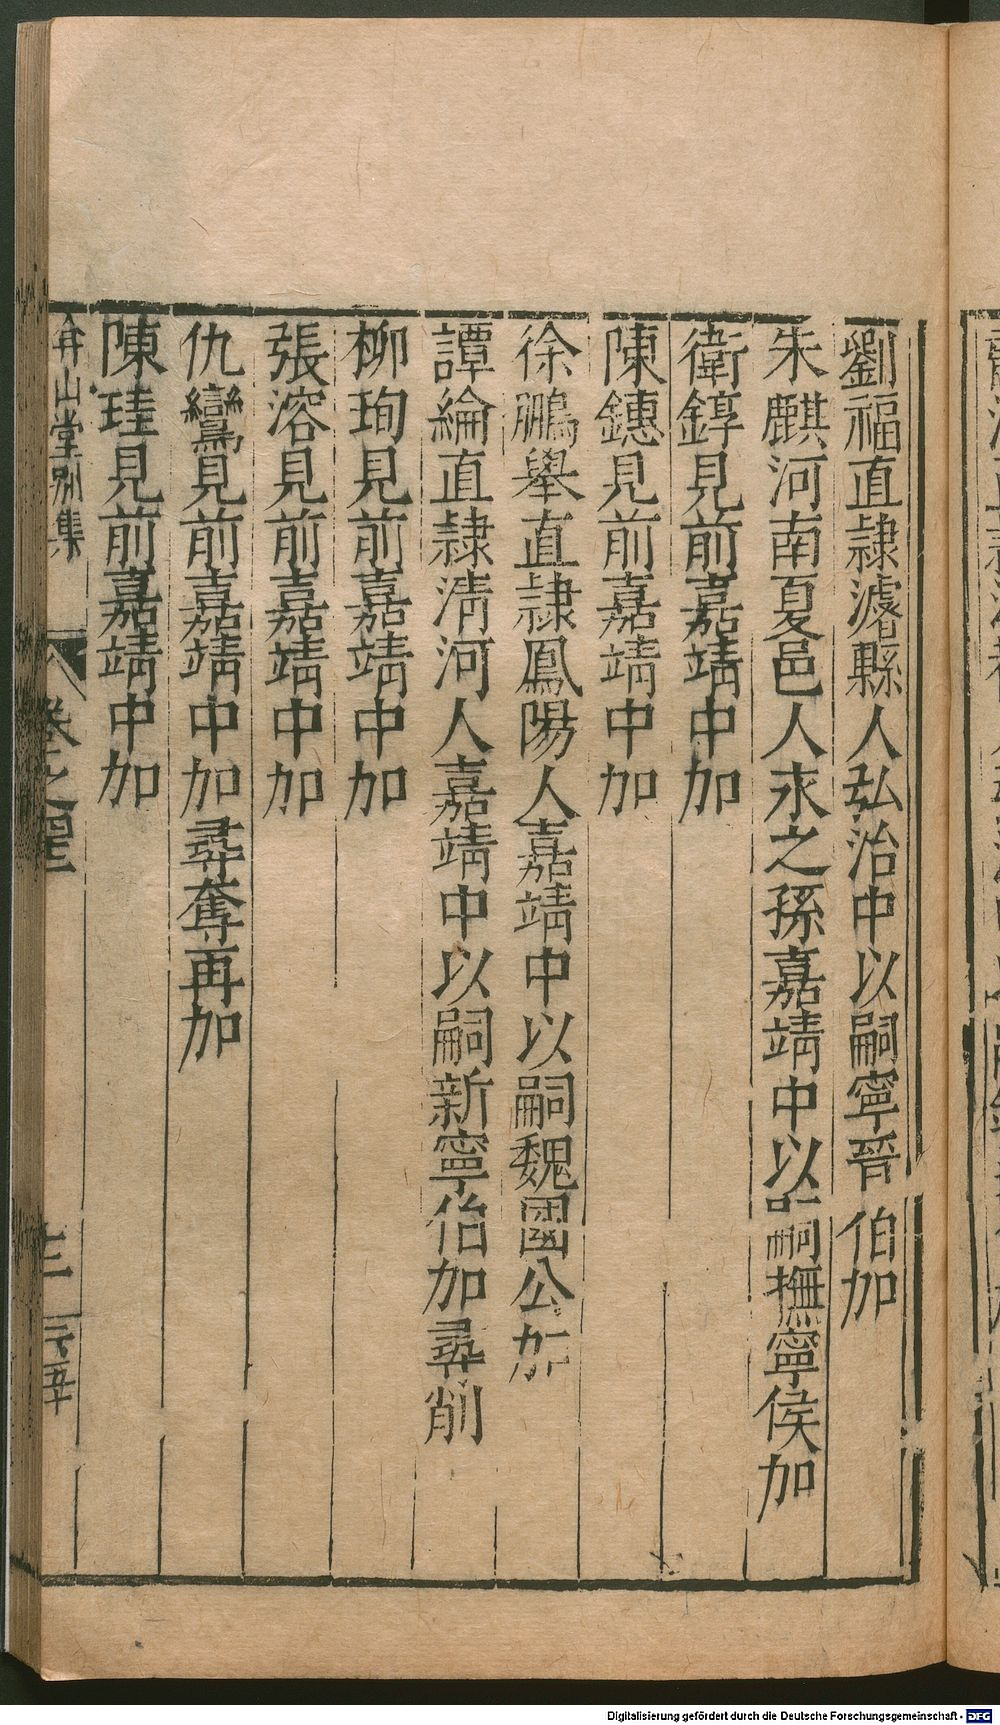 劉福直隸濬縣人弘治中以嗣寧晉伯加
朱麒河南夏邑人永之孫嘉靖中以嗣撫寧侯加
衛錞見前嘉靖中加
陳鏸見前嘉靖中加
徐鵬舉直隸鳳陽人嘉靖中以嗣魏國公加
譚綸直隸清河人嘉靖中以嗣新寧伯加尋削
柳珣見前嘉靖中加
張溶見前嘉靖中加
仇鸞見前嘉靖中加尋奪再加
陳珪見前嘉靖中加
弇山堂別集
卷之
Digitalisierung gefördert durch die Deutsche Forschungsgemeinschaft - DFG